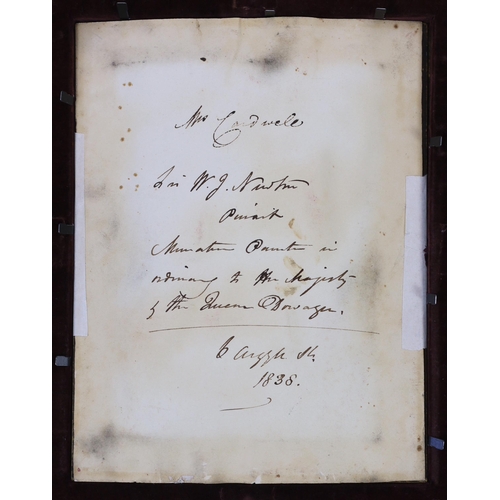 Mrs Cardwell
Sir W. J. Newton
Pinxit
Miniature Painter in
ordinary to Her Majesty
& the Queen Dowager.
6 Argyll St.
1838.